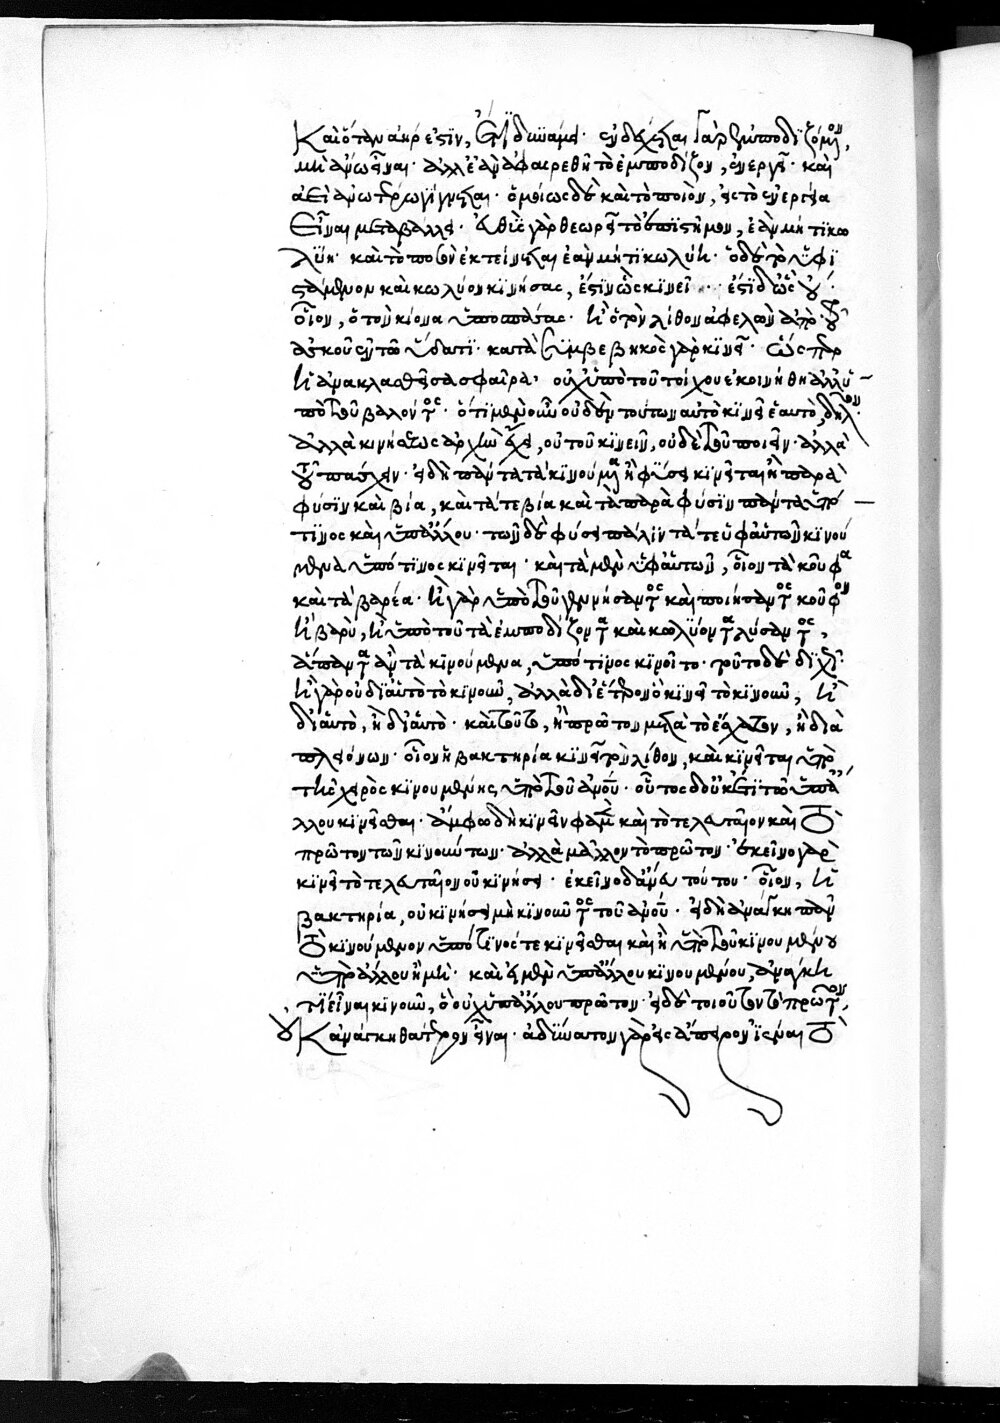 Καὶ ὅταν ἀὴρ ἐστὶν, ἔτι δυνάμει· ἐνδέχεται γὰρ ἐμποδιζόμενον,
μὴ ἄνω εἶναι· ἀλλ' ἐὰν ἀφαιρεθῆ τὸ ἐμποδίζον, ἐνεργεῖ· καὶ
ἀεὶ ἀνωτέρω γίγνεται· ὁμοίως δὲ καὶ τὸ ποιὸν, εἰς τὸ ἐνεργείᾳ
εἶναι μεταβάλλει· εὐθὺς γὰρ θεωρεῖ τὸ ἐπιστῆμον, ἐὰν μή τι κω
λύῃ· καὶ τὸ ποσὸν ἐκτείνεται ἐὰν μή τι κωλύῃ· ὁ δὲ τὸ ὑφι
στάμενον καὶ κωλύον κινήσας, ἔστιν ὡς κινεῖ ἔστι δ' ὡς οὔ·
οἷον, ὁ τὸν κίονα ὑποσπάσας· ἢ ὁ τὸν λίθον ἀφελὼν ἀπὸ τοῦ
ἀσκοῦ ἐν τῷ ὕδατι· κατὰ συμβεβηκὸς γὰρ κινεῖ· ὥσπερ
ἡ ἀνακλασθεῖσα σφαῖρα· οὐχ ὑπὸ τοῦ τοίχου ἐκινήθη ἀλλ' ὑ
πὸ τοῦ βάλλοντος· ὅτι μὲν οὖν οὐδὲν τούτων αὐτὸ κινεῖ ἑαυτὸ, δῆλον·
ἀλλὰ κινήσεως ἀρχὴν ἔχει, οὐ τοῦ κινεῖν, οὐδὲ τοῦ ποιεῖν· ἀλλὰ
τοῦ πάσχειν· εἰ δὴ πάντα τὰ κινούμενα ἢ φύσει κινεῖται ἢ παρὰ
φύσιν καὶ βίᾳ, καὶ τά τε βίᾳ καὶ τὰ παρὰ φύσιν πάντα ὑπό
τινος καὶ ὑπ' ἄλλου· τῶν δὲ φύσει πάλιν τά τε ὑφ' αὑτῶν κινού
μενα ὑπό τινος κινεῖται· καὶ τὰ μὴ ὑφ' αὑτῶν, οἷον τὰ κοῦφα
καὶ τὰ βαρέα· ἢ γὰρ ὑπὸ τοῦ γεννήσαντος καὶ ποιήσαντος κοῦφον
ἢ βαρὺ, ἢ ὑπὸ τοῦ τὰ ἐμποδίζοντα καὶ κωλύοντα λύσαντος,
ἅπαντα ἂν τὰ κινούμενα, ὑπό τινος κινοῖτο· τοῦτο δὲ διχῶς·
ἢ γὰρ οὐ δι' αὑτὸ τὸ κινοῦν, ἀλλὰ δι' ἕτερον ὃ κινεῖ τὸ κινοῦν, ἢ
δι' αὑτὸ, ἢ δι' αὑτὸ· καὶ τοῦτο, ἢ πρῶτον μετὰ τὸ ἔσχατον, ἢ διὰ
πλειόνων· οἷον ἡ βακτηρία κινεῖ τὸν λίθον, καὶ κινεῖται ὑπὸ
τῆς χειρὸς κινουμένης, ὑπὸ τοῦ ἀνου· οὗτος δ' οὐκέτι τῷ ὑπ' ἄ
λλου κινεῖσθαι· ἄμφω δὴ κινεῖν φαμὲν καὶ τὸ τελευταῖον καὶ τὸ
πρῶτον τῶν κινούντων· ἀλλὰ μᾶλλον τὸ πρῶτον· ἐκεῖνο γὰρ
κινεῖ τὸ τελευταῖον οὐ κινήσει· ἐκεῖνο δ' ἄνευ τούτου· οἷον, ἡ
βακτηρία, οὐ κινήσει μὴ κινοῦντος τοῦ ἀνου· εἰ δὴ ἀνάγκη πᾶν
τὸ κινούμενον ὑπό τινός τε κινεῖσθαι καὶ ἢ ὑπὸ τοῦ κινουμένου
ὑπὸ ἄλλου ἢ μὴ· καὶ εἰ μὲν ὑπ' ἄλλου κινουμένου, ἀνάγκη
τι εἶναι κινοῦν, ὃ οὐχ ὑπ' ἄλλου πρῶτον· εἰ δὲ τοιοῦτον τὸ πρῶτον,
οὐκ ἀνάγκη θάτερον εἶναι· ἀδύνατον γὰρ εἰς ἄπειρον ἰέναι τὸ